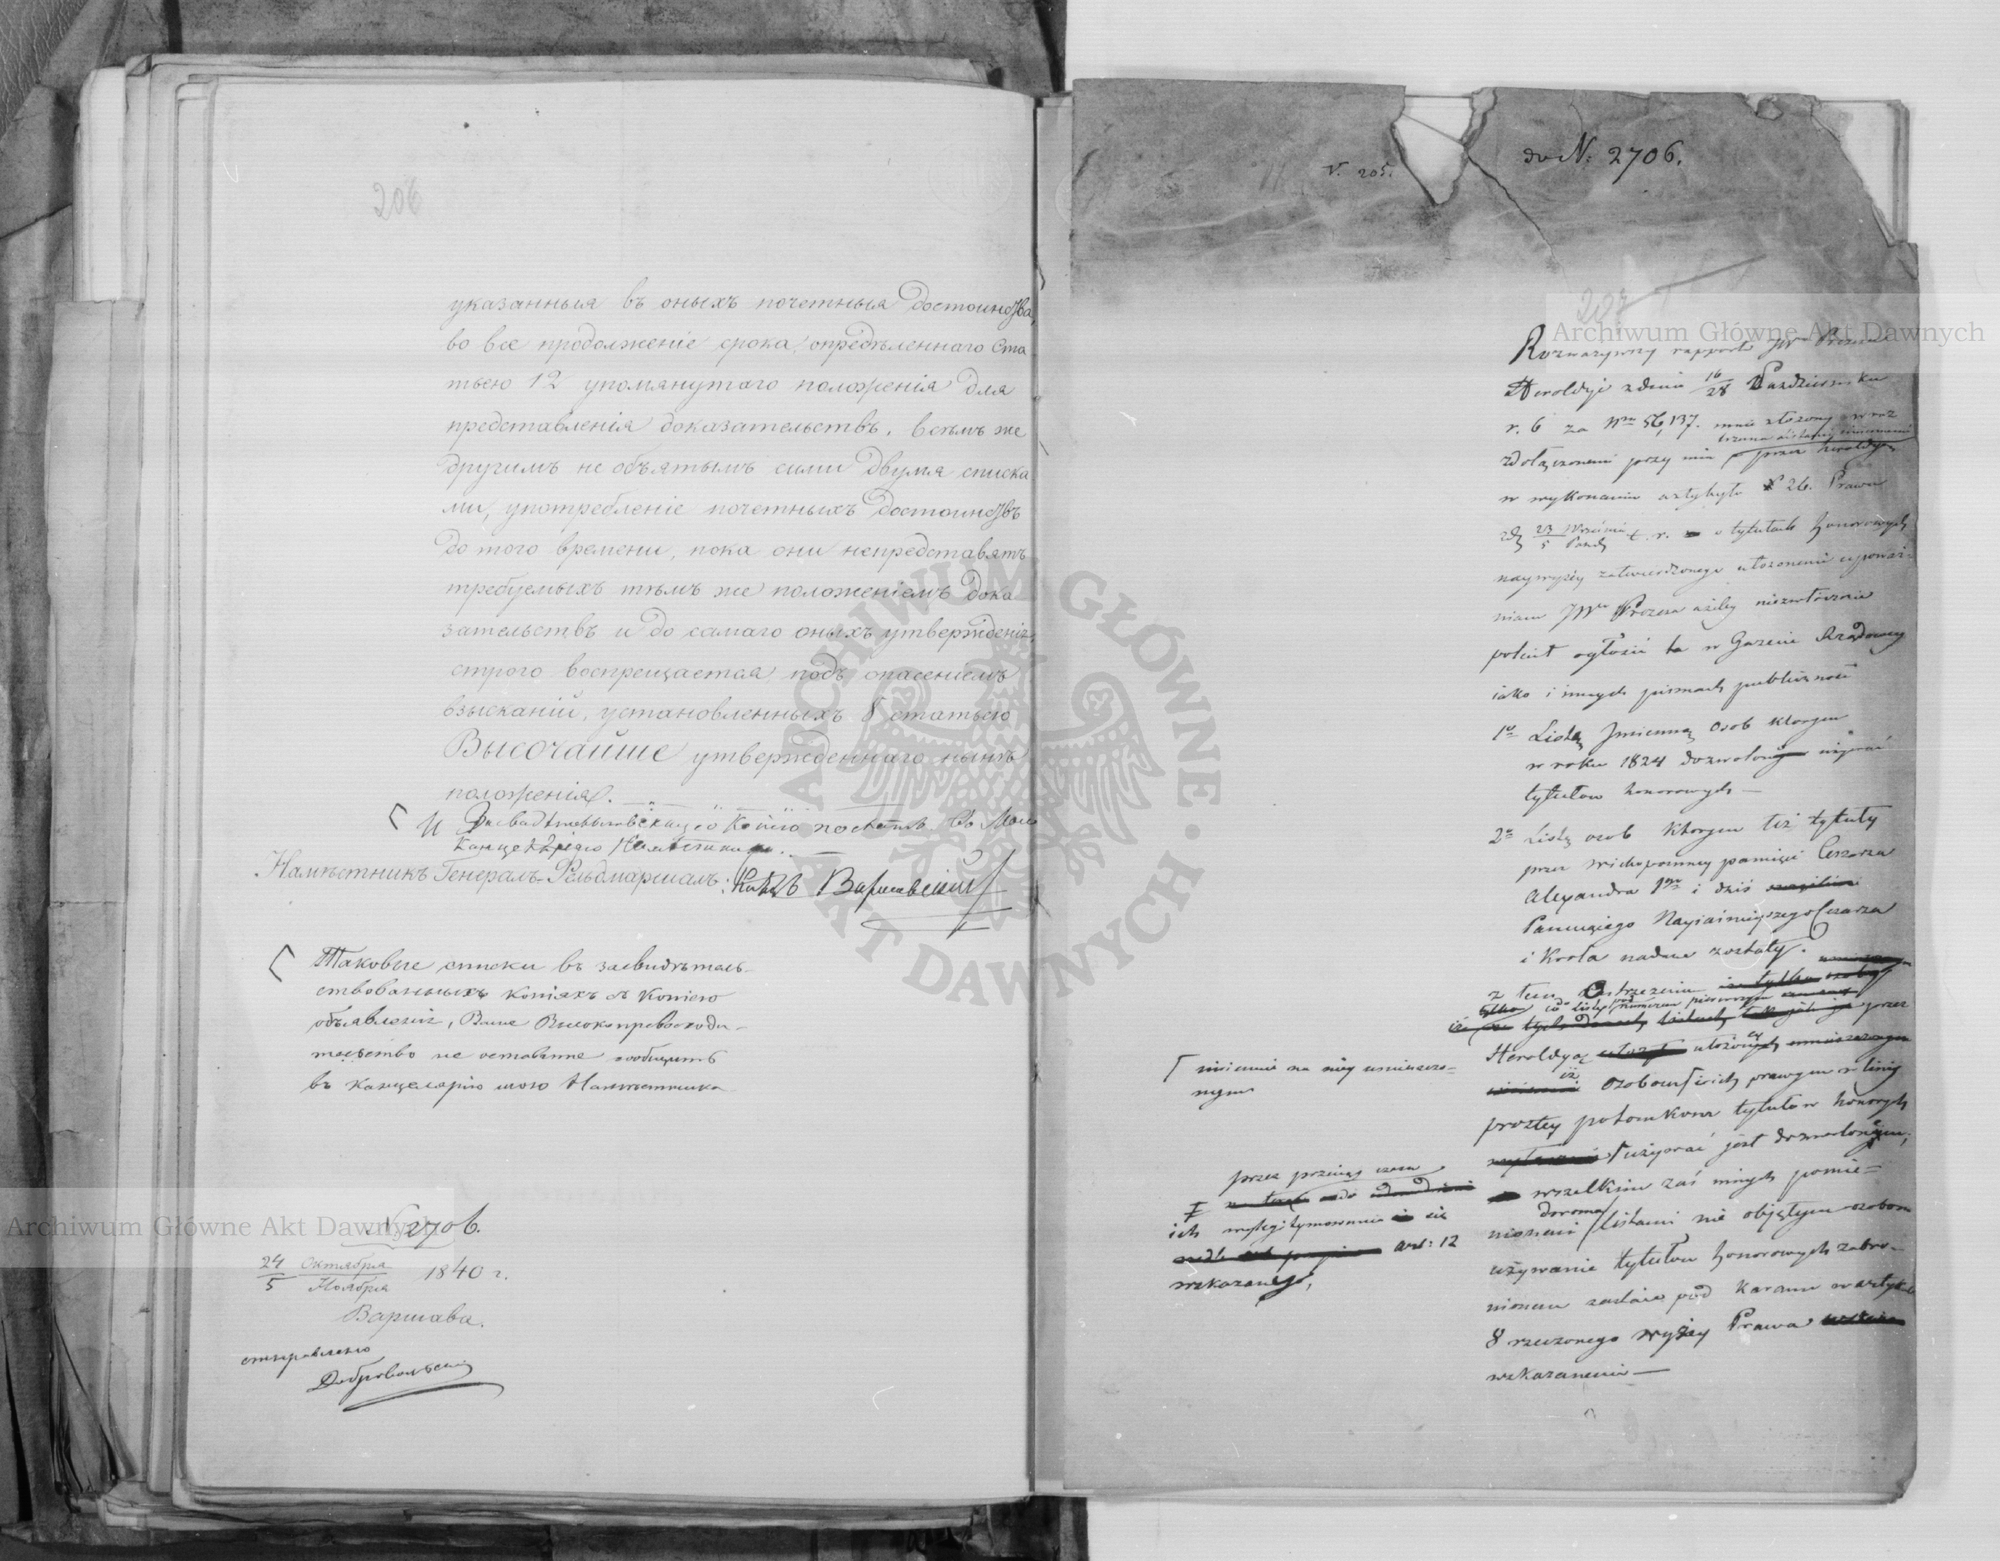 206
указанныя въ оныхъ почетныя достоинства,
во все продолженіе срока, опредѣленнаго Ста
тьею 12 упомянутаго положенія для
представленія доказательствъ. Всѣмъ же
другимъ не объятымъ сими двумя списка
ми, употребленіе почетныхъ достоинствъ
до того времени, пока они непредставятъ
требуемыхъ тѣмъ же положеніемъ дока
зательствъ и до самаго оныхъ утвержденія,
строго воспрещается, подъ опасеніемъ
взысканій, установленныхъ 8 статьею
Высочайше утвержденнаго нынѣ
положенія.
Намѣстникъ Генералъ-Фельдмаршалъ: Князь Варшавскій
Таковые списки въ засвидѣтель-
ствованныхъ копіяхъ съ копіею
объявленія, Ваше Высокопревосходи-
тельство не оставите сообщить
въ канцелярію мою Намѣстника
N 2706.
24 Октября
5 Ноября 1840 г.
Варшава.
отправлено
Добровольскій
V. 205.
do N: 2706.
207
Rozważywszy rapport JW Prezesa
Heroldyi z dnia 16/28 Października
r. b za Nrm 56,137. mnie złożony wraz
z dołączonemi przy nim przez heroldyą
w wykonaniu artykułu 26. Prawa
23 Września
5 Paźd t. r. o tytułach honorowych
naywyżey zatwierdzonego ułożonemi upoważ-
niam JWo Prezesa ażeby niezwłocznie
polecił ogłosić to w Gazecie Rządowey
iako i innych pismach publiczność
1o Listę Jmienną osob którym
w roku 1824 dozwolono używać
tytułow honorowych —
2o Listę osob którym też tytuły
przez wiekopomney pamięci Cesarza
Alexandra Igo i dziś
Panuiącego Nayiaśnieyszego Cesarza
i Krola nadane zostały.
z tem Ostrzeżeniem
tylko co do listy pod numerem pierwszym
przez
Heroldyą ułożoney
iż osobom ich prawym w linij
prostey potomkom tytułow honorowych
używać jest dozwolonym,
wszelkim zaś innym pomie-
nionemi dwoma listami nie objętym osobom
używanie tytułow honorowych zabro-
nionem zostaie pod karami w artykule
8 rzeczonego wyżey Prawa
wskazanemi —
imiennie na niey umieszczo-
nym
przez przeciąg czasu
ich wylegitymowania się
art: 12
wskazanego,
Archiwum Główne Akt Dawnych
Archiwum Główne Akt Dawnych
ARCHIWUM GŁÓWNE · AKT DAWNYCH ·